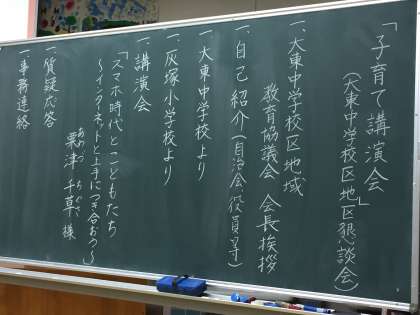 「子育て講演会」
（大東中学校区地区懇談会）
一、大東中学校区地域
教育協議会 会長挨拶
一、自己紹介（自治会役員等）
一、大東中学校より
一、灰塚小学校より
一、講演会
「スマホ時代とこどもたち
～インターネットと上手につき合おう～」
あわづ ちぐさ
粟津 千草 様
一、質疑応答
一、事務連絡